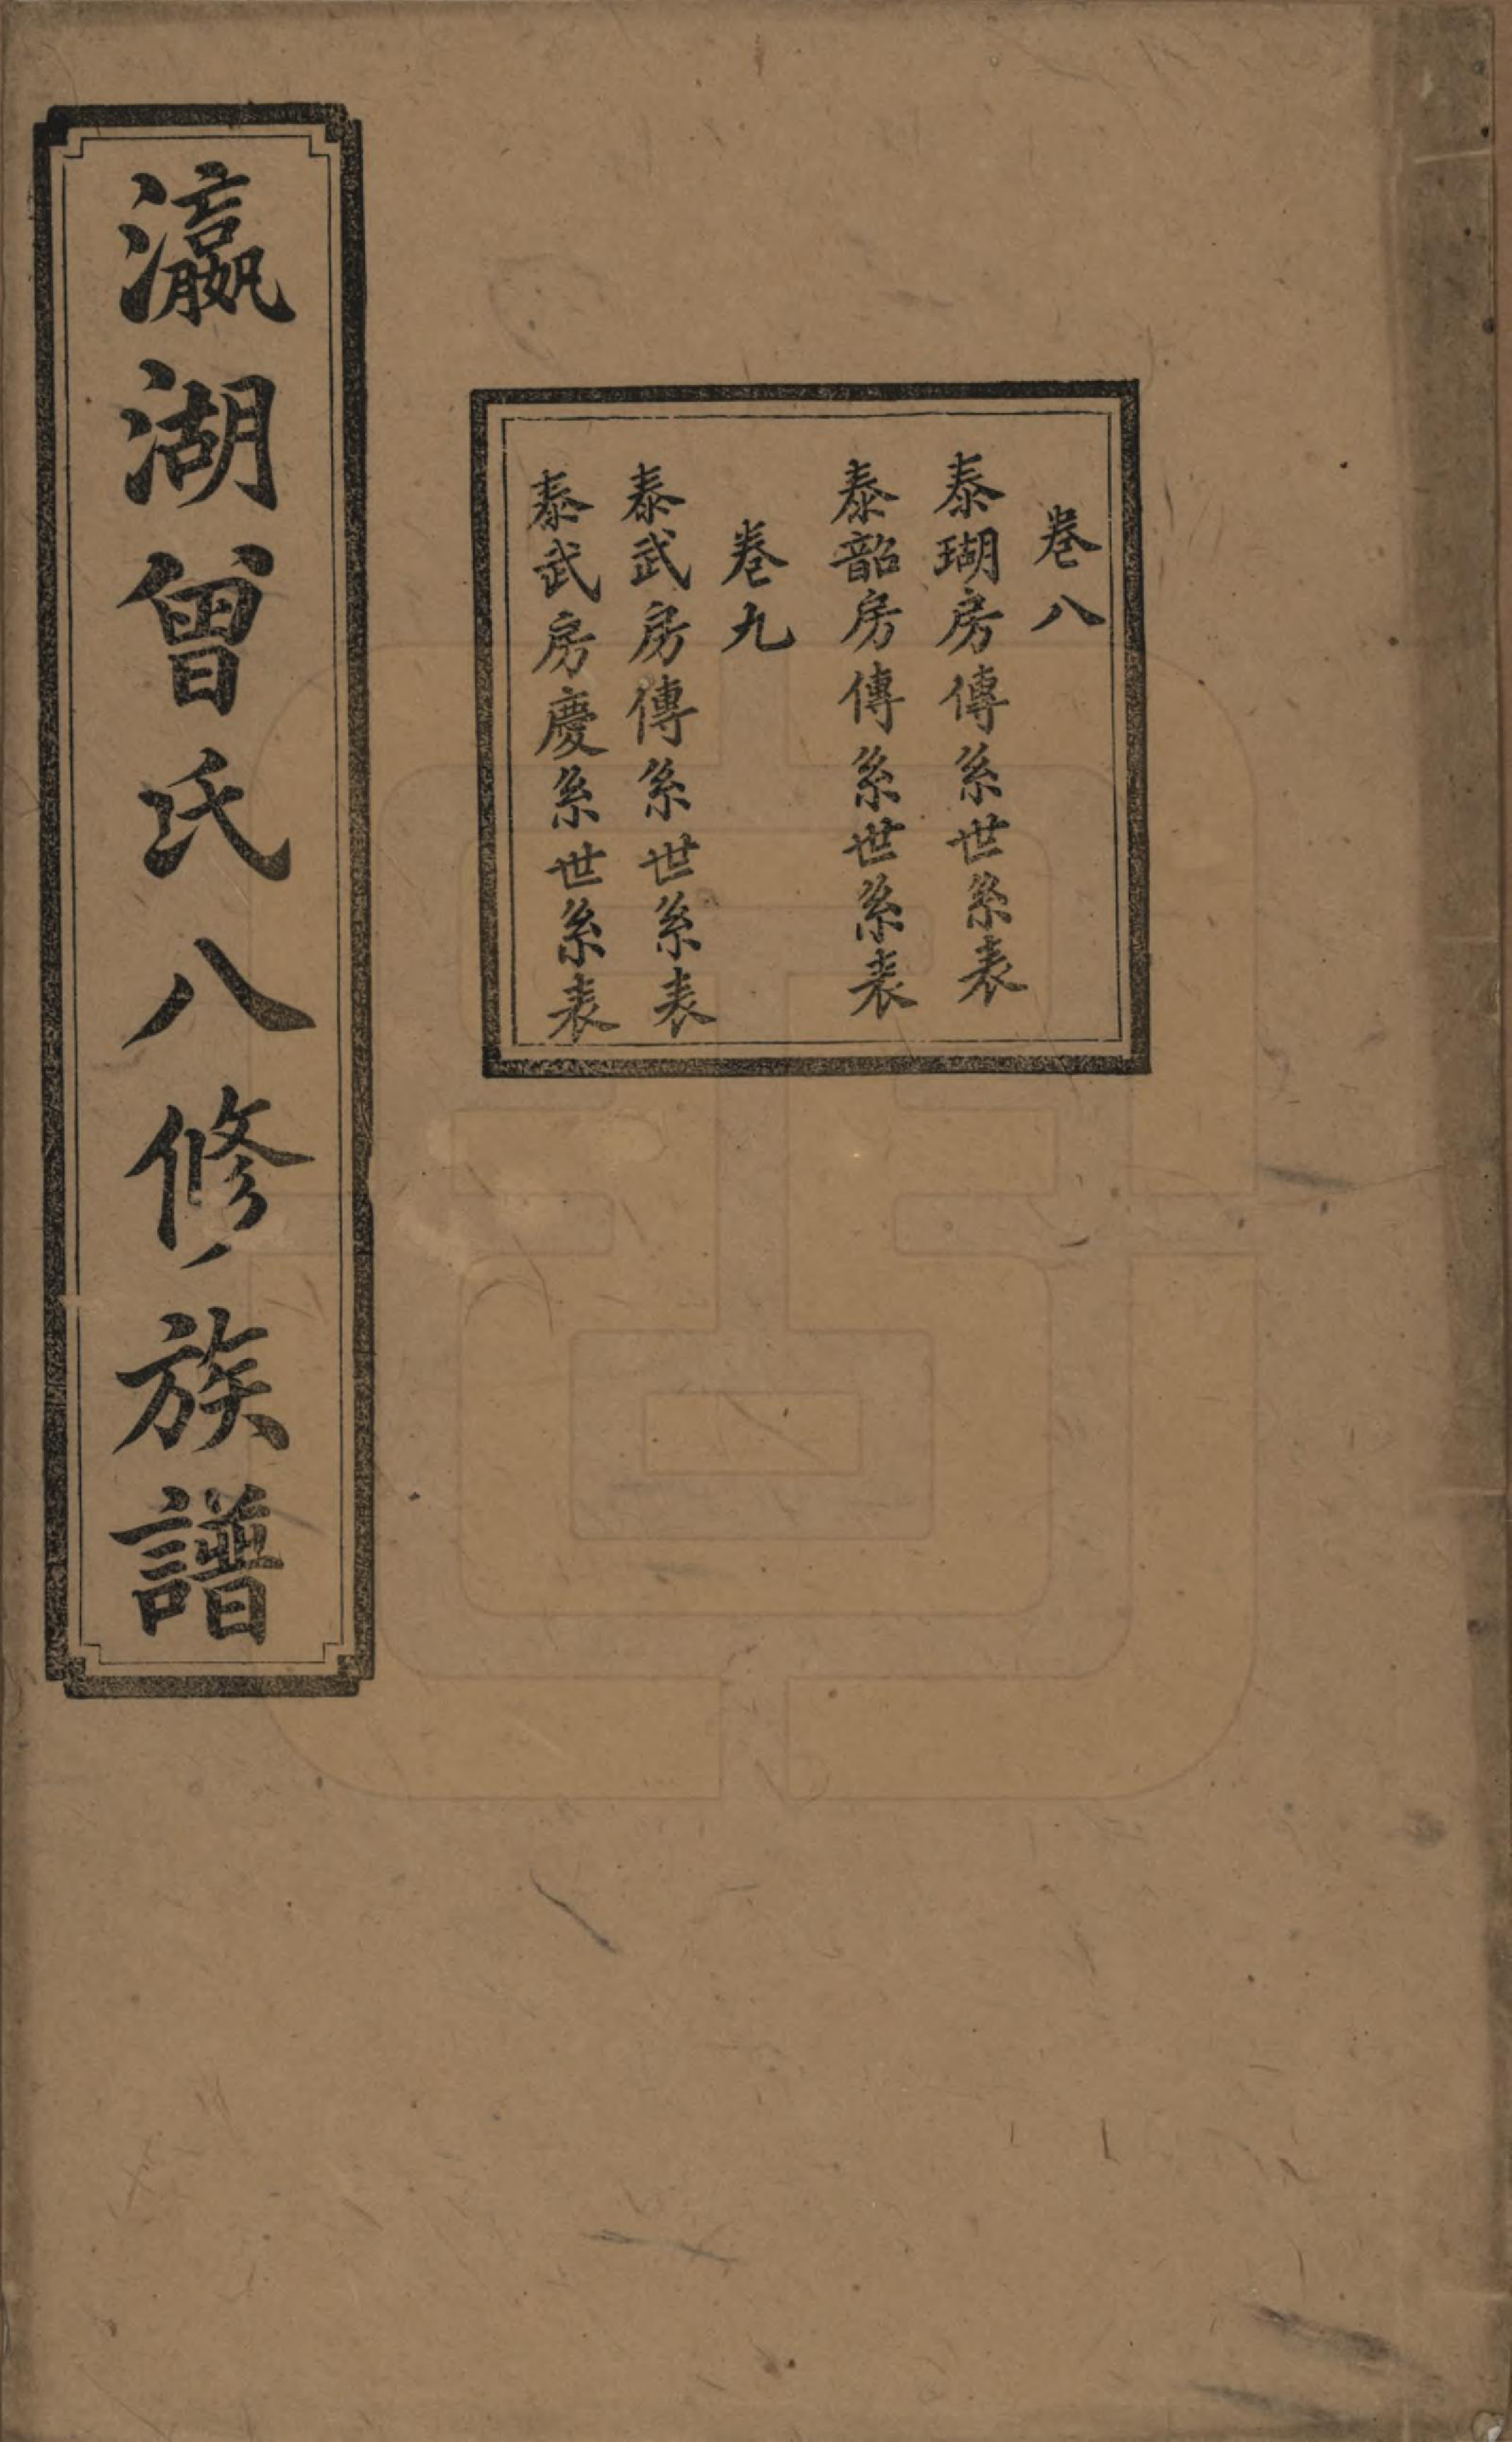 卷八
泰瑚房傳系世系表
泰韶房傳系世系表
卷九
泰武房傳系世系表
泰武房慶系世系表
瀛湖曾氏八修族譜